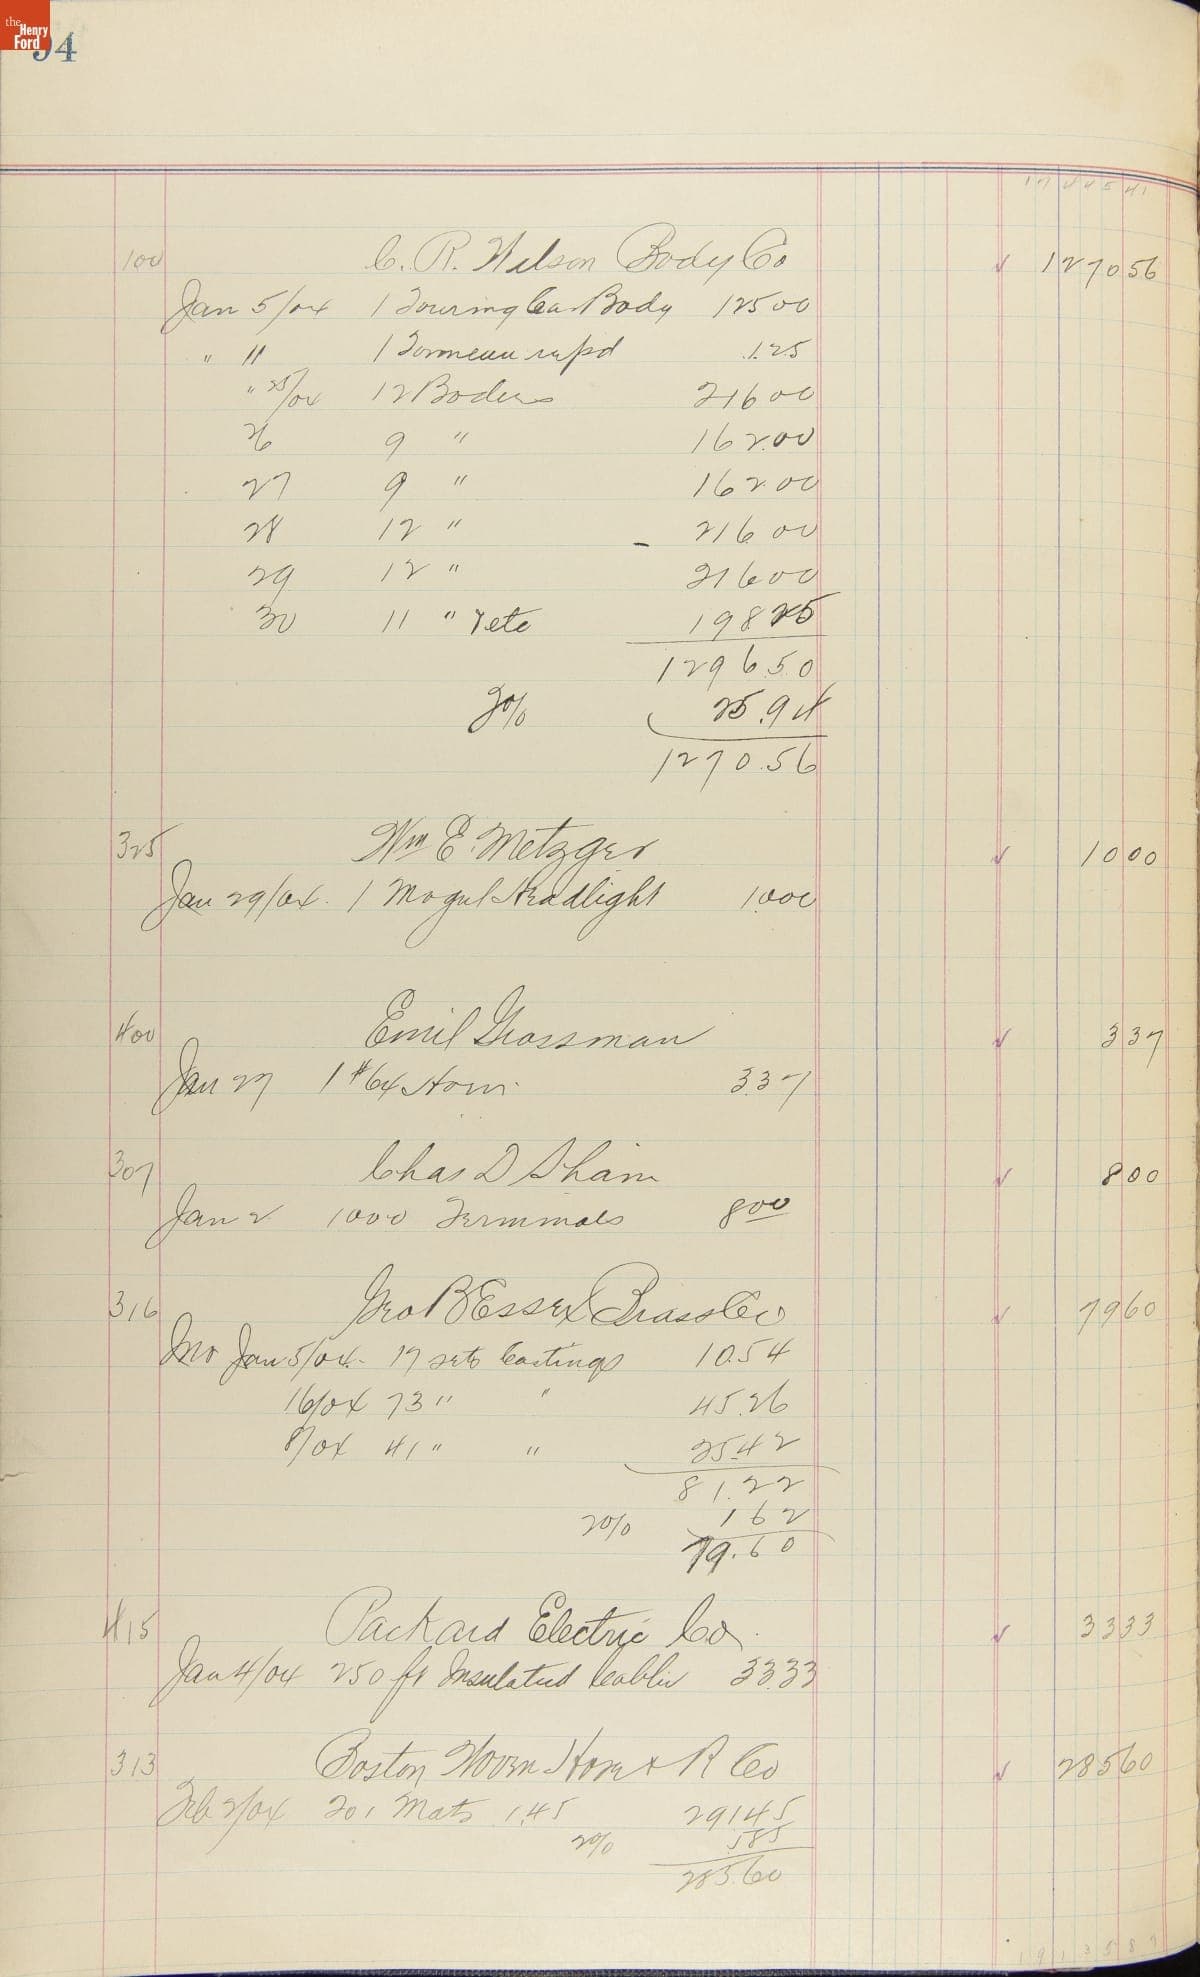 the Henry Ford
94
17 4 4 5 41
100 C. R. Wilson Body Co ✓ 1270 56
Jan 5/04 1 Touring Car Body 125 00
" 11 1 Tonneau repd 1.25
" 25/04 12 Bodies 216 00
26 9 " 162.00
27 9 " 162 00
28 12 " 216 00
29 12 " 216 00
30 11 " & etc 198 25
1296 50
2% 25.94
1270.56
325 Wm E. Metzger ✓ 10 00
Jan 29/04. 1 Mogul Headlight 10.00
400 Emil Grossman ✓ 3 37
Jan 27 1 #64 Horn 3.37
307 Chas D Sham ✓ 8 00
Jan 2 1000 Terminals 8 00
316 Geo B Essex Brass Co ✓ 79 60
Jan 5/04 - 17 sets Castings 10.54
16/04 73 " " 45.26
8/04 41 " " 25.42
81.22
2% 1 62
79.60
415 Packard Electric Co. ✓ 33 33
Jan 4/04 250 ft Insulated Cable 33.33
313 Boston Woven Hose & R Co ✓ 285 60
Feb 2/04 201 Mats 1.45 291.45
2% 5 85
285.60
1 9 1 3 5 8 7